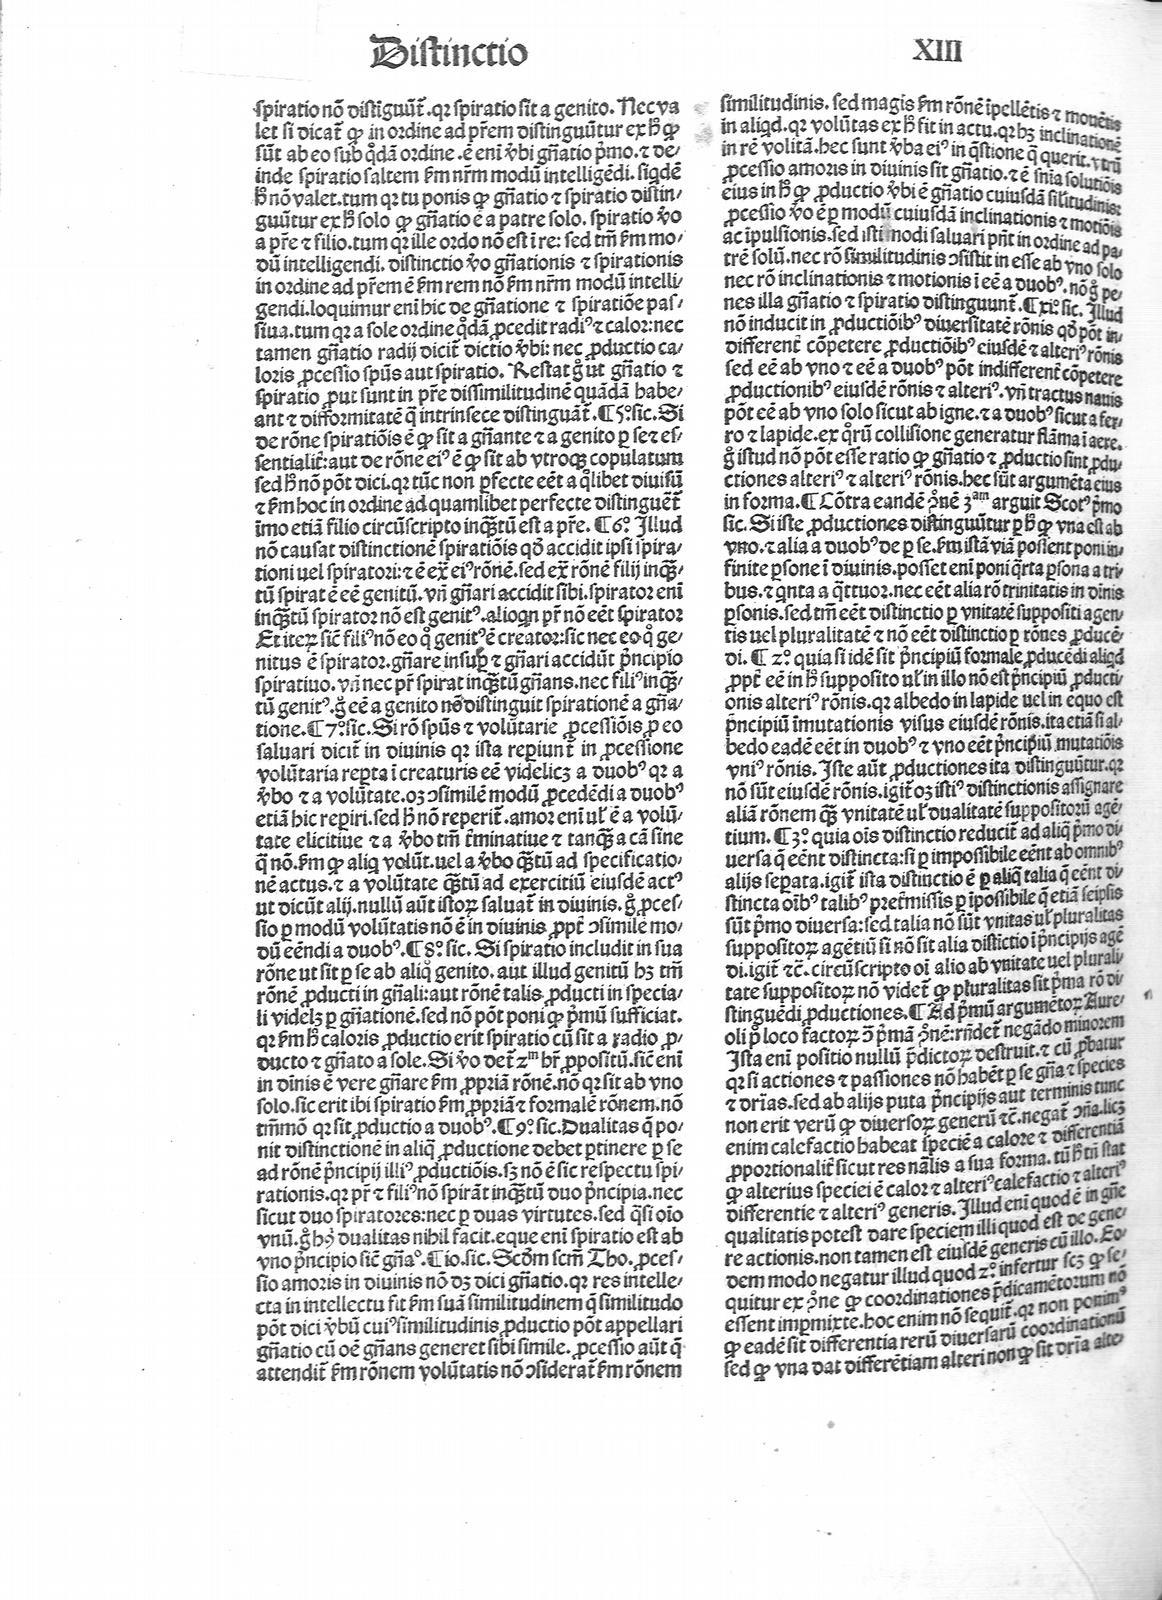 Distinctio
XIII
spiratio nō distīguūt̄.qꝛ spiratio sit a genito. Nec va
let si dicat̄ ꝙ in ordine ad pr̄em distinguūtur ex h̄ ꝙ
sūt ab eo sub q̊dā ordine .ē eni v̄bi gn̄atio p̄mo.⁊ de⸗
inde spiratio saltem ẜm nr̄m modū intelligēdi. siqdē
h̄ nō valet.tum qꝛ tu ponis ꝙ gn̄atio ⁊ spiratio distin⸗
guūtur ex h̄ solo ꝙ gn̄atio ē a patre solo. spiratio v̄o
a pr̄e ⁊ filio.tum qꝛ ille ordo nō est ī re: sed tm̄ ẜm mo⸗
dū intelligendi. distinctio v̄o gn̄ationis ⁊ spirationis
in ordine ad pr̄em ē ẜm rem nō ẜm nr̄m modū intelli⸗
gendi.loquimur eni hic de gn̄atione ⁊ spiratiōe pas⸗
siua.tum qꝛ a sole ordine q̊dā ꝓcedit radiꝰ ⁊ calor:nec
tamen gn̄atio radij dicit̄ dictio v̄bi: nec ꝓductio ca⸗
loris ꝓcessio spūs aut spiratio. Restat g̊ ut gn̄atio ⁊
spiratio ꝓut sunt in pr̄e dissimilitudinē quādā habe⸗
ant ⁊ difformitatē q̄ intrinsece distinguāt̄.¶5º.sic. Si
de rōne spiratiōis ē ꝙ sit a gn̄ante ⁊ a genito ꝑ se ⁊ es⸗
sentialit̄:aut de rōne eiꝰ ē ꝙ sit ab vtroqꝫ copulatum
sed h̄ nō pōt dici.qꝛ tūc non ꝑfecte eēt a q̊libet diuisū
⁊ ẜm hoc in ordine ad quamlibet perfecte distinguēt̄
īmo etiā filio circūscripto inqꝫtū est a pr̄e. ¶6º. Illud
nō causat distinctionē spiratiōis qd̄ accidit ipsi spira⸗
tioni uel spiratori:⁊ ē ex̄ eiꝰ rōnē.sed ex̄ rōnē filij inqꝫ⸗
tū spirat ē eē genitū. vn̄ gn̄ari accidit sibi.spirator eni
inqꝫtū spirator nō est genitꝰ.alioqn pr̄ nō eēt spirator
Et iteꝝ sic filiꝰ nō eo q̊ genitꝰ ē creator:sic nec eo q̊ ge⸗
nitus ē spirator.gn̄are insuꝑ ⁊ gn̄ari accidūt p̄ncipio
spiratiuo. vn̄ nec pr̄ spirat inqꝫtū gn̄ans.nec filiꝰ inqꝫ⸗
tū genitꝰ.g̊ eē a genito nō distinguit spirationē a gn̄a⸗
tione.¶7º.sic. Si rō spūs ⁊ volūtarie ꝓcessiōis ꝑ eo
saluari dicit̄ in diuinis qꝛ ista reꝑiunt̄ in ꝓcessione
volūtaria reꝑta ī creaturis eē videlicꝫ a duobꝰ qꝛ a
v̄bo ⁊ a volūtate.oꝫ ↄsimilē modū ꝓcedēdi a duobꝰ
etiā hic reꝑiri.sed h̄ nō reꝑerit̄.amor eni ul̄ ē a volū⸗
tate elicitiue ⁊ a v̄bo tm̄ t̄minatiue ⁊ tanqꝫ a cā sine
q̄ nō.ẜm ꝙ aliq volūt.uel a v̄bo qꝫtū ad specificatio⸗
nē actus.⁊ a volūtate qꝫtū ad exercitiū eiusdē actꝰ
ut dicūt alij.nullū aūt istoꝝ saluat̄ in diuinis.g̊ ꝓces⸗
sio ꝑ modū volūtatis nō ē in diuinis ꝓpt̄ ↄsimile mo⸗
dū eēndi a duobꝰ.¶8º.sic. Si spiratio includit in sua
rōne ut sit ꝑ se ab aliq̊ genito. aut illud genitū hꝫ tm̄
rōnē ꝓducti in gn̄ali:aut rōnē talis ꝓducti in specia⸗
li videlꝫ ꝑ gn̄ationē.sed nō pōt poni ꝙ p̄mū sufficiat.
qꝛ ẜm h̄ caloris ꝓductio erit spiratio cū sit a radio ꝓ⸗
ducto ⁊ gn̄ato a sole. Si v̄o det̄ 2ᵐ hr̄ ꝓpositū.sic̄ eni
in diīnis ē vere gn̄are ẜm ꝓpriā rōnē.nō qꝛ sit ab vno
solo.sic erit ibi spiratio ẜm ꝓpriā ⁊ formalē rōnem.nō
tm̄mō qꝛ sit ꝓductio a duobꝰ.¶9º.sic. Dualitas q̄ po⸗
nit distinctionē in aliq̄ ꝓductione debet ꝑtinere ꝑ se
ad rōnē p̄ncipij illiꝰ ꝓductiōis.sꝫ nō ē sic respectu spi⸗
rationis.qꝛ pr̄ ⁊ filiꝰ nō spirāt inqꝫtū duo p̄ncipia.nec
sicut duo spiratores:nec ꝑ duas virtutes.sed q̄si oīo
vnū.g̊ hꝰ dualitas nihil facit.eque eni spiratio est ab
vno p̄ncipio sic̄ gn̄aº.¶10.sic. Scd̄m scm̄ Tho. ꝓces⸗
sio amoris in diuinis nō dꝫ dici gn̄atio.qꝛ res intelle⸗
cta in intellectu fit ẜm suā similitudinem q̄ similitudo
pōt dici v̄bū cuiꝰ similitudinis ꝓductio pōt appellari
gn̄atio cū oē gn̄ans generet sibi simile. ꝓcessio aūt q̄
attendit̄ ẜm rōnem volūtatis nō ↄsiderat̄ ẜm rōnem
similitudinis. sed magis ẜm rōnē īpellētis ⁊ mouētis
in aliqd. qꝛ volūtas ex h̄ fit in actu.qꝛ hꝫ inclinationē
in rē volitā.hec sunt v̄ba eiꝰ in q̄stione q̄ querit.vtrū
ꝓcessio amoris in diuinis sit gn̄atio.⁊ ē sn̄ia solutiōis
eius in h̄ ꝙ ꝓductio v̄bi ē gn̄atio cuiusdā sil̄itudinis:
ꝓcessio v̄o ē ꝑ modū cuiusdā inclinationis ⁊ motiōis
ac īpulsionis.sed isti modi saluari pn̄t in ordine ad pa⸗
trē solū.nec rō similitudinis ↄsistit in esse ab vno solo
nec rō inclinationis ⁊ motionis ī eē a duobꝰ. nō g̊ pe⸗
nes illa gn̄atio ⁊ spiratio distinguunt̄.¶xiº. sic. Illud
nō inducit in ꝓductiōibꝰ diuersitatē rōnis qd̄ pōt in⸗
different̄ cōpetere ꝓductiōibꝰ eiusdē ⁊ alteriꝰ rōnis
sed eē ab vno ⁊ eē a duobꝰ pōt indifferent̄ cōpetere
ꝓductionibꝰ eiusdē rōnis ⁊ alteriꝰ. vn̄ tractus nauis
pōt eē ab vno solo sicut ab igne.⁊ a duobꝰ sicut a fer⸗
ro ⁊ lapide.ex q̊rū collisione generatur flāma ī aere.
g̊ istud nō pōt esse ratio ꝙ gn̄atio ⁊ ꝓductio sint ꝓdu⸗
ctiones alteriꝰ ⁊ alteriꝰ rōnis.hec sūt argumēta eius
in forma.¶Cōtra eandē ꝯ̄nē 3ᵃᵐ arguit Scotꝰ p̄mo
sic. Si iste ꝓductiones distinguūtur ꝑ h̄ ꝙ vna est ab
vno.⁊ alia a duobꝰ de ꝑ se.ẜm istā viā possent poni in⸗
finite ꝑsone ī diuinis.posset eni poni q̄rta ꝑsona a tri⸗
bus.⁊ qnta a q̄ttuor.nec eēt alia rō trinitatis in diīnis
ꝑsonis.sed tm̄ eēt distinctio ꝑ vnitatē suppositi agen⸗
tis uel pluralitatē ⁊ nō eēt distinctio ꝑ rōnes ꝓducē⸗
di.¶2º. quia si idē sit p̄ncipiū formale ꝓducēdi aliqd
ꝓpt̄ eē in h̄ supposito ul̄ in illo nō est p̄ncipiū ꝓducti⸗
onis alteriꝰ rōnis.qꝛ albedo in lapide uel in equo est
p̄ncipiū īmutationis visus eiusdē rōnis.ita etiā si al⸗
bedo eadē eēt in duobꝰ ⁊ vno eēt p̄ncipiū mutatiōis
vniꝰ rōnis. Iste aūt ꝓductiones ita distinguūtur.qꝛ
nō sūt eiusdē rōnis.igit̄ oꝫ istiꝰ distinctionis assignare
aliā rōnem qꝫ vnitatē ul̄ dualitatē suppositorū agē⸗
tium. ¶3º. quia oīs distinctio reducit̄ ad aliq̄ p̄mo di⸗
uersa q̄ eēnt distincta:si ꝑ impossibile eēnt ab omnibꝰ
alijs seꝑata.igit̄ ista distinctio ē ꝑ aliq̄ talia q̄ eēnt di⸗
stincta oībꝰ talibꝰ p̄term̄issis ꝑ īpossibile q̄ etiā seipsis
sūt p̄mo diuersa:sed talia nō sūt vnitas ul̄ pluralitas
suppositoꝝ agētiū si nō sit alia distīctio ī p̄ncipijs agē
di.igit̄ ⁊c̄. circūscripto oī alio ab vnitate uel plurali⸗
tate suppositoꝝ nō videt̄ ꝙ pluralitas sit p̄ma rō di⸗
stinguēdi ꝓductiones.¶Ad p̄mū argumētoꝝ Aure⸗
oli p̄ loco factoꝝ ↄ̄ p̄mā ꝯ̄nē:rn̄det̄ negādo minorem
Ista eni positio nullū p̄dictoꝝ destruit.⁊ cū ꝓbatur
qꝛ si actiones ⁊ passiones nō habēt ꝑ se gn̄a ⁊ species
⁊ dr̄ias.sed ab alijs puta p̄ncipijs aut terminis tunc
non erit verū ꝙ diuersoꝝ generū ⁊c̄.negat̄ ↄn̄a.licꝫ
enim calefactio habeat speciē a calore ⁊ differentiā
ꝓportionalit̄ sicut res nāl̄is a sua forma. tū h̄ tn̄ stat
ꝙ alterius speciei ē calor ⁊ alteriꝰ calefactio ⁊ alteriꝰ
differentie ⁊ alteriꝰ generis. Illud eni quod ē in gn̄e
qualitatis potest dare speciem illi quod est de gene⸗
re actionis.non tamen est eiusdē generis cū illo. Eo⸗
dem modo negatur illud quod 2º. infertur scꝫ ꝙ se⸗
quitur ex ꝯ̄ne ꝙ coordinationes p̄dicamētorum nō
essent impmixte.hoc enim nō sequit̄.qꝛ non ponimꝰ
ꝙ eadē sit differentia rerū diuersarū coordinationū
sed ꝙ vna dat differētiam alteri non ꝙ sit dr̄ia alte⸗